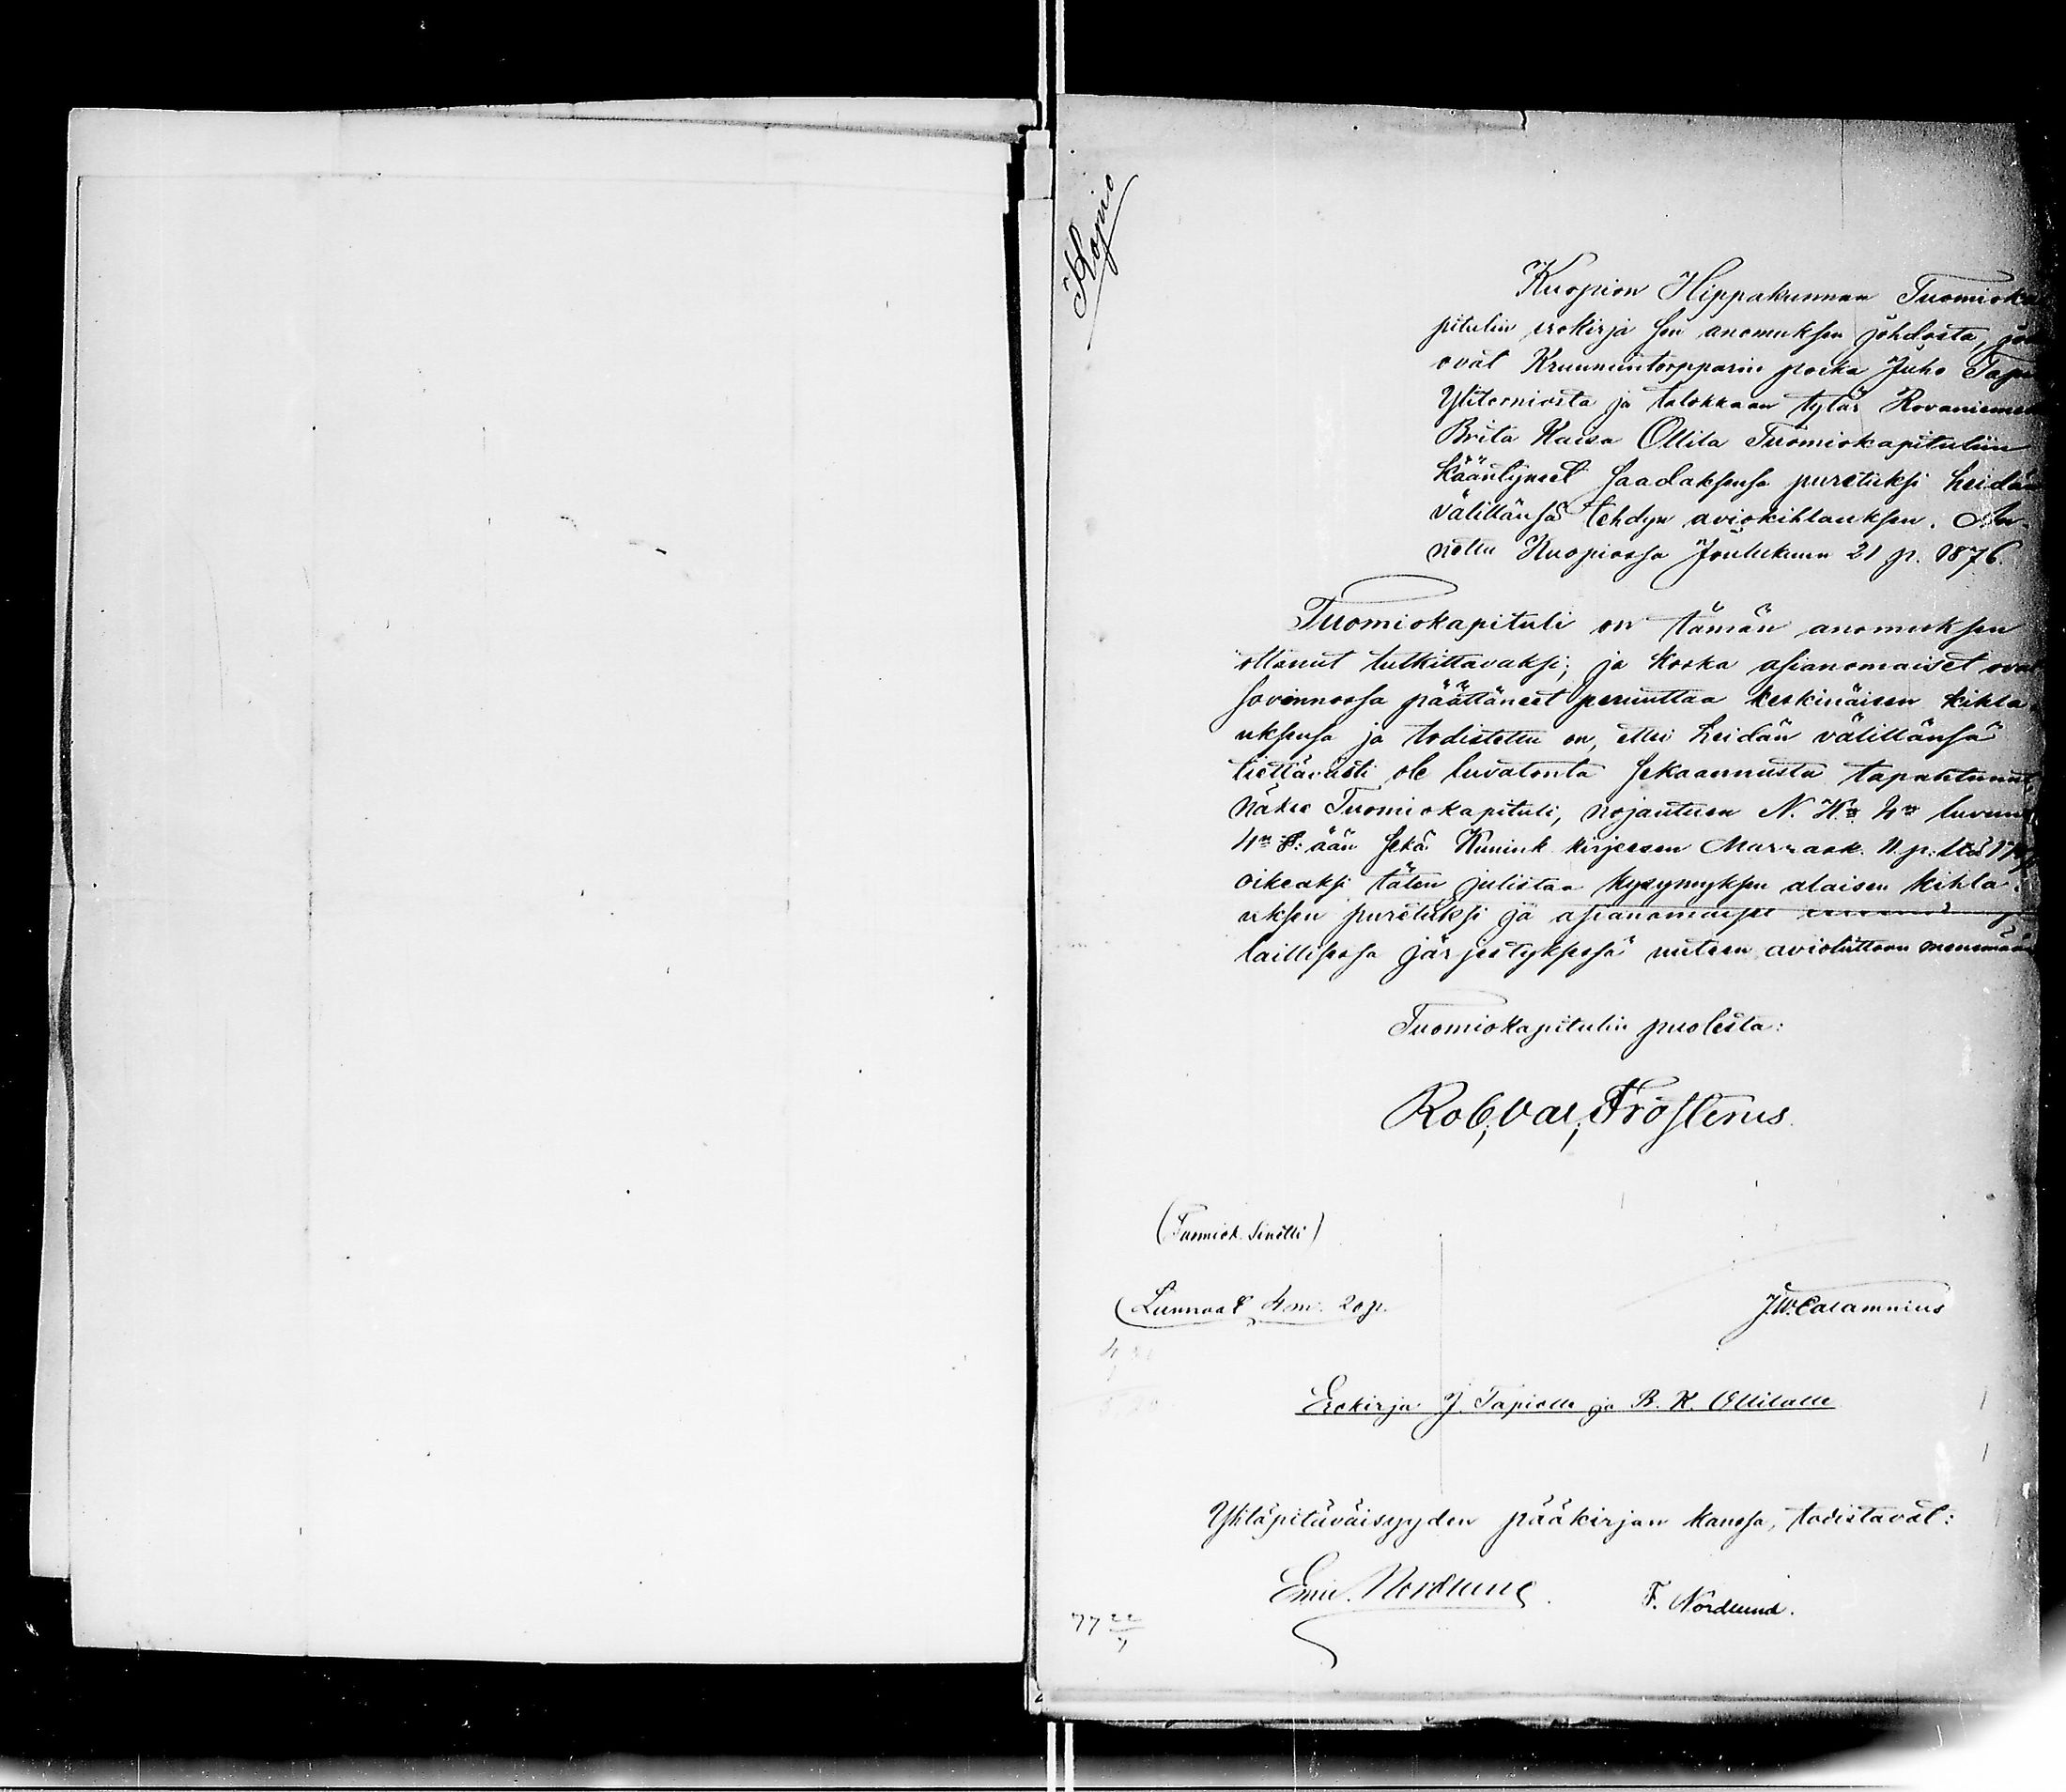 Kopio
Kuopion Hippakunnan Tuomioka
pitulin erokirja sen anomuksen johdosta, jo
ovat Kruununtorpparin poika Juho Tapi
Ylitorniosta ja talokkaan tytär Rovaniemel
Brita Kaisa Ollila Tuomiokapituliin
kääntyneet saadaksensa puretuksi heidän
välillänsä tehdyn aviokihlauksen. An-
nettu Kuopiossa Joulukuun 21 p. 1876.
Tuomiokapituli on tämän anomuksen
ottanut tutkittavaksi; ja koska asianomaiset ovat
sovinnossa päättäneet peruuttaa keskinäisen kihla
uksensa ja todistettu on, ettei heidän välillänsä
tiettävästi ole luvatonta sekaannusta tapahtunut,
näkee Tuomiokapituli, nojautuen N. K:n 4:n luvun
4:n §: ään sekä Kunink. kirjeesen Marrask. 11 p:ltä
oikeaksi täten julistaa kysymyksen alaisen kihla-
uksen puretuksi ja asianomaiset
laillisessa järjestyksessä uuteen avioliittoon menemään
Tuomiokapitulin puolesta:
Rob; Val; Frosterus.
(Tuomiok. Sinetti)
Lunnaat 4 m: 20 p.
J. W. Calamnius
Erokirja J. Tapiolle ja B. K. Ollilalle
Yhtäpitäväisyyden pääkirjan kanssa, todistavat:
Emil Nordlund.
F. Nordlund.
77 22/7